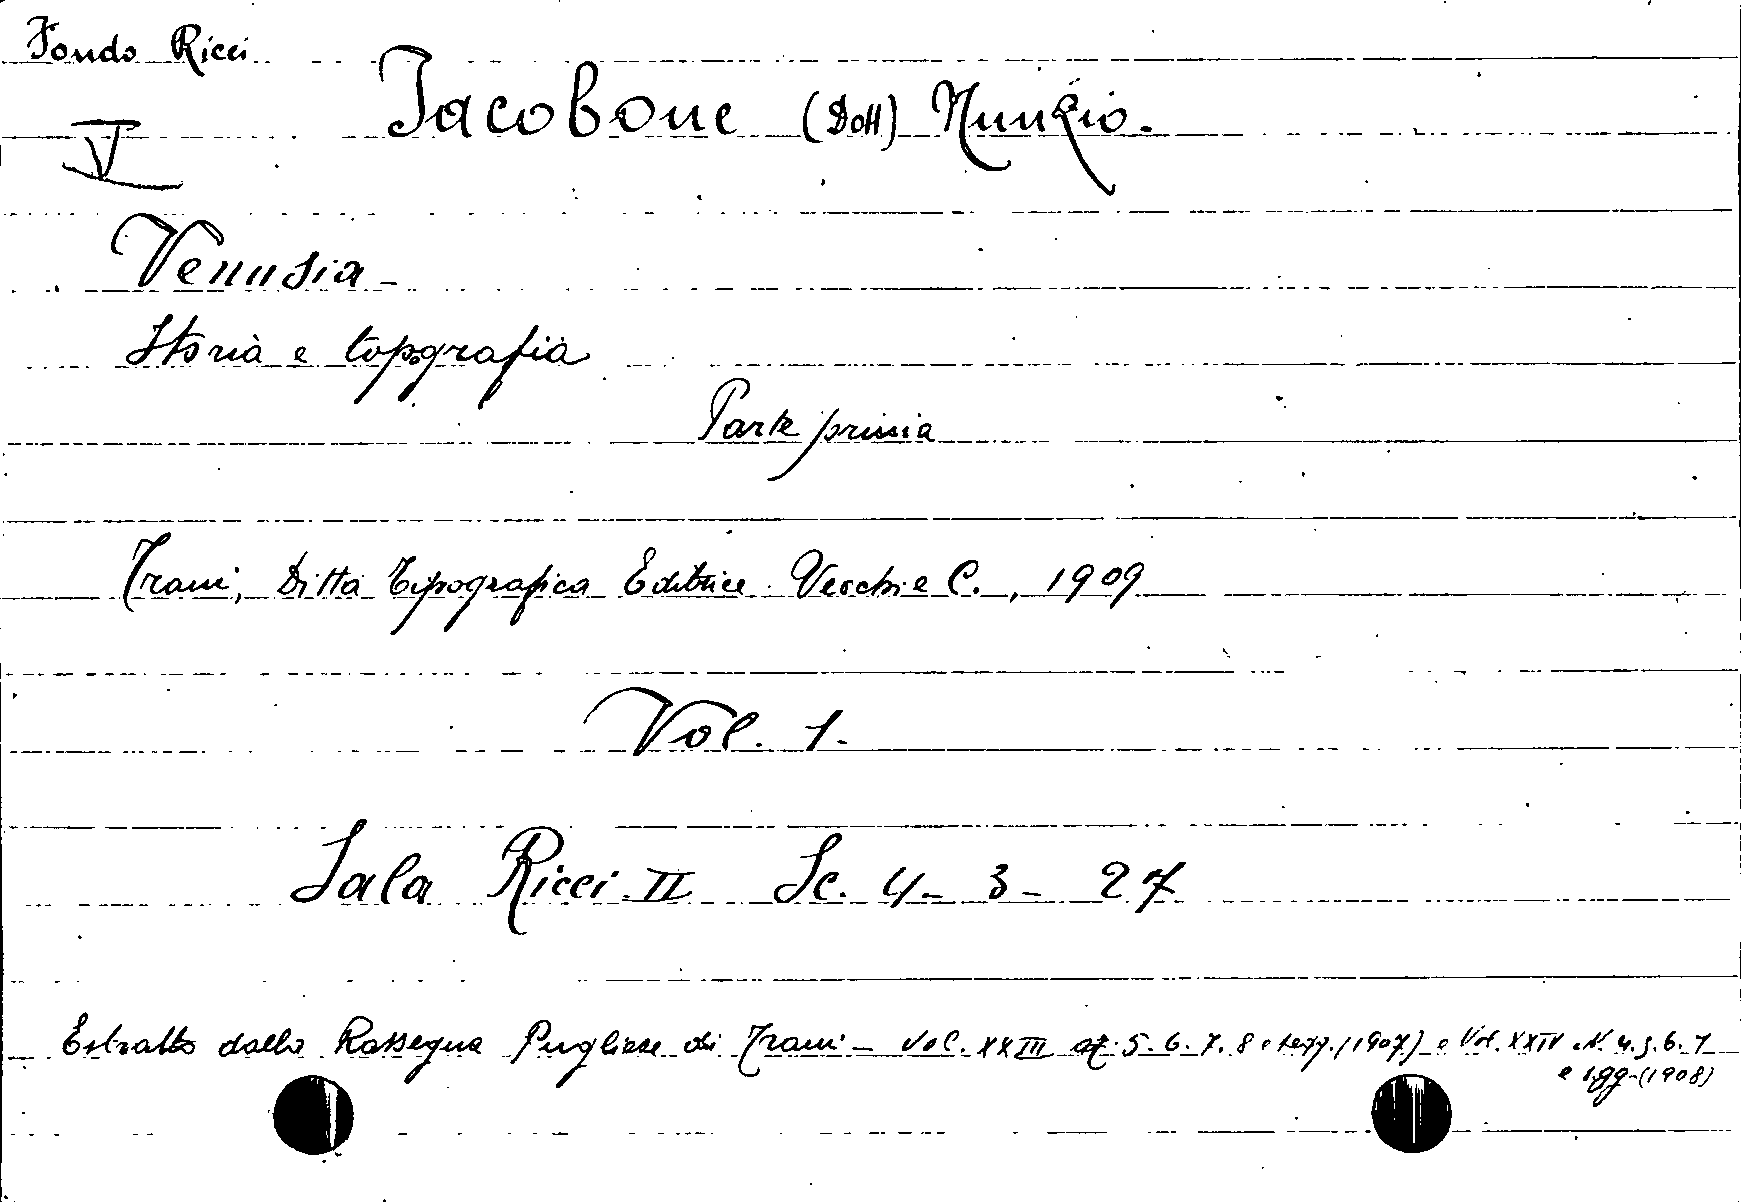 Fondo Ricci
Jacobone (Dott) Nunzio.
V
Venusia -
Storia e topografia
Parte prima
Trani, Ditta Tipografica Editrice Vecchi e C., 1909
Vol. 1.
Sala Ricci II Sc. 4 - 3 - 27
Estratto dalla Rassegna Pugliese di Trani - Vol. XXIII 5. 6. 7. 8 e segg. (1907) e Vol. XXIV N. 4. 5. 6. 7
e sgg. (1908)